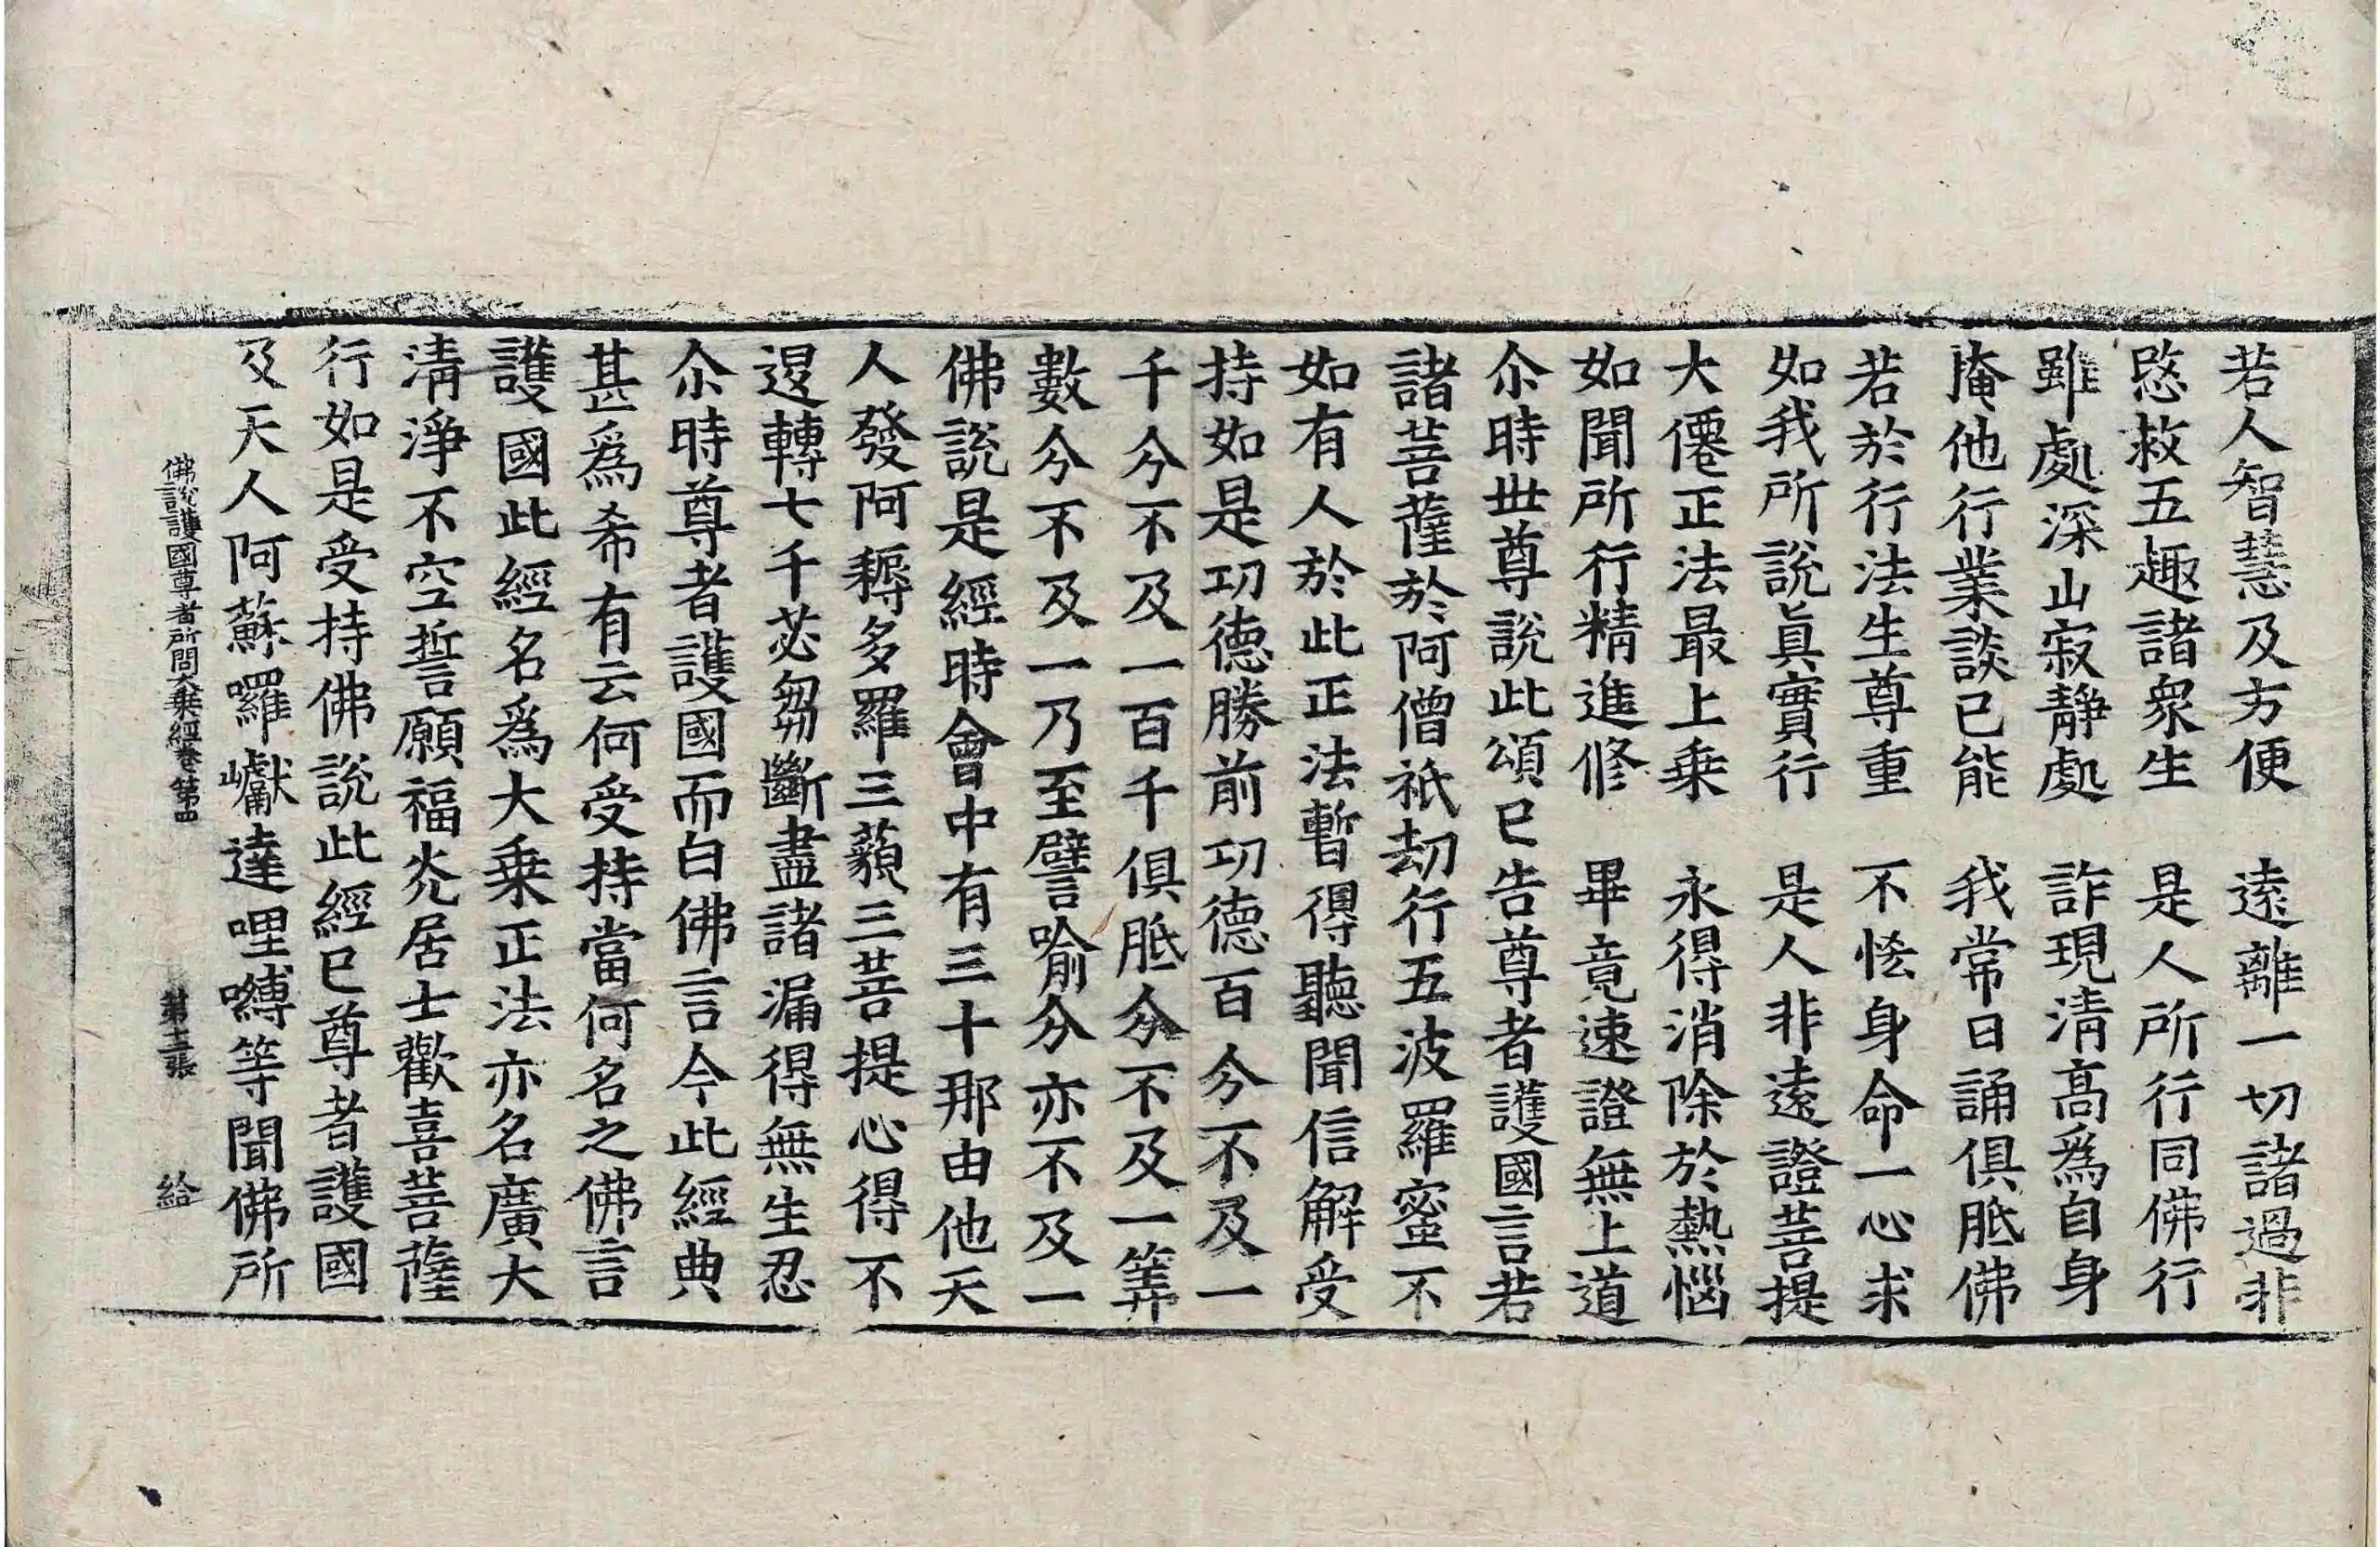 若人智慧及方便　遠離一切諸過非
愍救五趣諸衆生　是人所行同佛行
雖處深山寂靜處　詐現清髙爲自身
掩他行業談己能　我常日誦俱胝佛
若於行法生尊重　不恡身命一心求
如我所說眞實行　是人非遠證菩提
大僊正法最上乗　永得消除於熱惱
如聞所行精進修　畢竟速證無上道
尒時世尊說此頌已告尊者護國言若
諸菩薩於阿僧祇劫行五波羅蜜不
如有人於此正法暫得聽聞信解受
持如是功德勝前功德百分不及一
千分不及一百千俱胝分不及一筭
數分不及一乃至譬喻分亦不及一
佛說是經時會中有三十那由他天
人發阿耨多羅三藐三菩提心得不
退轉七千苾芻斷盡諸漏得無生忍
尒時尊者護國而白佛言今此經典
甚爲希有云何受持當何名之佛言
護國此經名爲大乗正法亦名廣大
清淨不空誓願福光居士歡喜菩薩
行如是受持佛說此經已尊者護國
及天人阿蘇囉巘達哩嚩等聞佛所
佛說護國尊者所問大乗經卷第四　第十三張　給